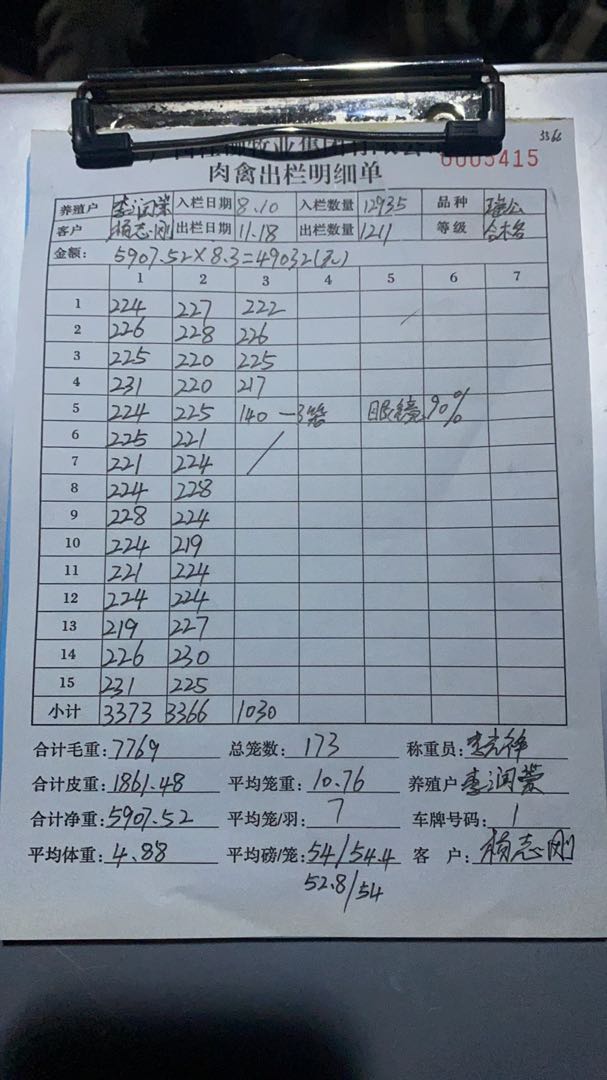 3366
牧业集团有限公
0003415
肉禽出栏明细单
养殖户 李润荣 入栏日期 8.10 入栏数量 12935 品种
客户 杨志刚 出栏日期 11.18 出栏数量 1211 等级 合格
金额: 5907.52×8.3=49032(元)
1 2 3 4 5 6 7
1 224 227 222
2 226 228 226
3 225 220 225
4 231 220 217
5 224 225 140 一3笼 眼镜90%
6 225 221
7 221 224
8 224 228
9 228 224
10 224 219
11 221 224
12 224 224
13 219 227
14 226 230
15 231 225
小计 3373 3366 1030
合计毛重: 7769 总笼数: 173 称重员:
合计皮重: 1861.48 平均笼重: 10.76 养殖户 李润荣
合计净重: 5907.52 平均笼/羽: 7 车牌号码: 1
平均体重: 4.88 平均磅/笼: 54/54.4 客 户: 杨志刚
52.8/54